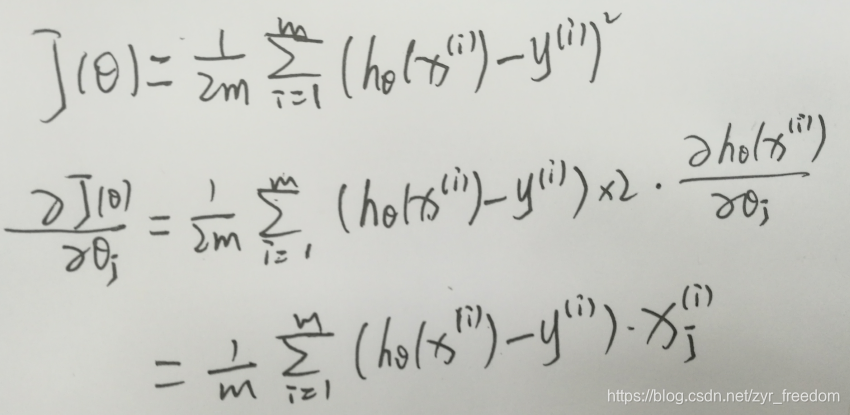 J(θ) = 1/2m ∑_{i=1}^{m} (hθ(x^{(i)}) - y^{(i)})^2
∂J(θ)/∂θ_j = 1/2m ∑_{i=1}^{m} (hθ(x^{(i)}) - y^{(i)}) ×2 · ∂hθ(x^{(i)})/∂θ_j
= 1/m ∑_{i=1}^{m} (hθ(x^{(i)}) - y^{(i)}) · x_j^{(i)}
https://blog.csdn.net/zyr_freedom